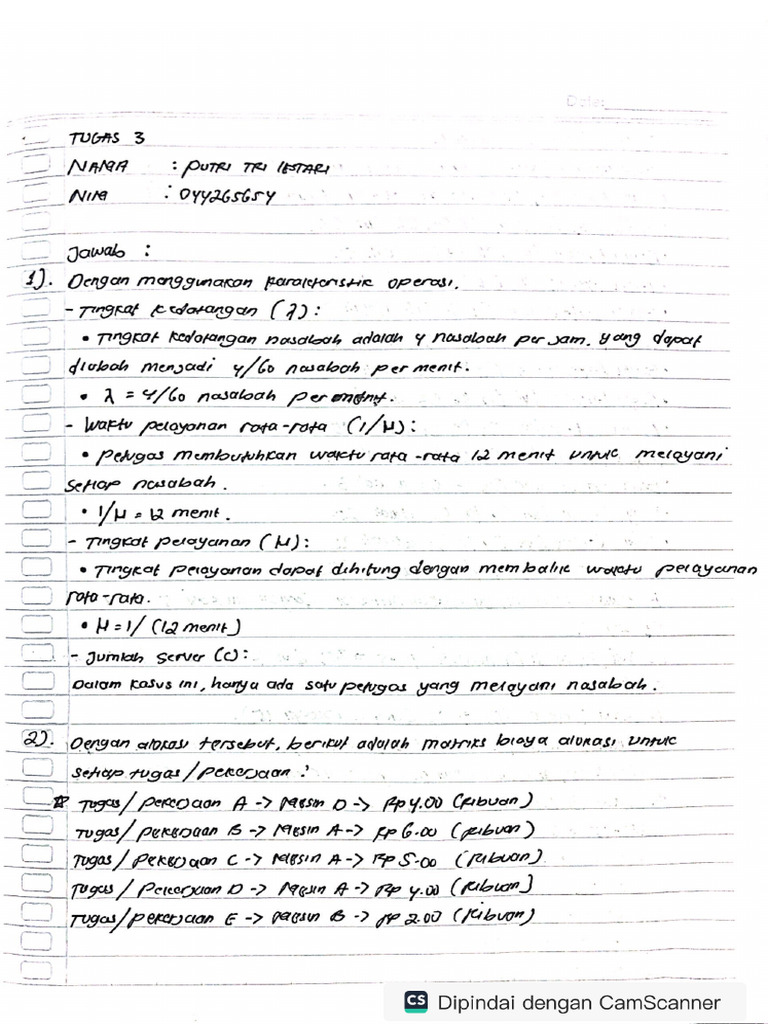 Date:
TUGAS 3
NAMA : PUTRI TRI LESTARI
NIM : 044265654
Jawab :
1). Dengan menggunakan karakteristik operasi.
- Tingkat kedatangan (λ) :
• Tingkat kedatangan nasabah adalah 4 nasabah per jam. yang dapat
diubah menjadi 4/60 nasabah per menit.
• λ = 4/60 nasabah per menit.
- Waktu pelayanan rata-rata (1/μ) :
• Petugas membutuhkan waktu rata-rata 12 menit untuk melayani
setiap nasabah.
• 1/μ = 12 menit.
- Tingkat pelayanan (μ) :
• Tingkat pelayanan dapat dihitung dengan membalik waktu pelayanan
rata-rata.
• μ = 1/ (12 menit)
- Jumlah server (c) :
Dalam kasus ini, hanya ada satu petugas yang melayani nasabah.
2). Dengan alokasi tersebut, berikut adalah matriks biaya alokasi untuk
setiap tugas/pekerjaan :
Tugas/ pekerjaan A -> Mesin D -> Rp 4.00 (Ribuan)
Tugas/ pekerjaan B -> Mesin A -> Rp 6.00 (Ribuan)
Tugas/ pekerjaan C -> Mesin A -> Rp 5.00 (Ribuan)
Tugas/ Pekerjaan D -> Mesin A -> Rp 4.00 (Ribuan)
Tugas/ pekerjaan E -> Mesin B -> Rp 2.00 (Ribuan)
CS Dipindai dengan CamScanner